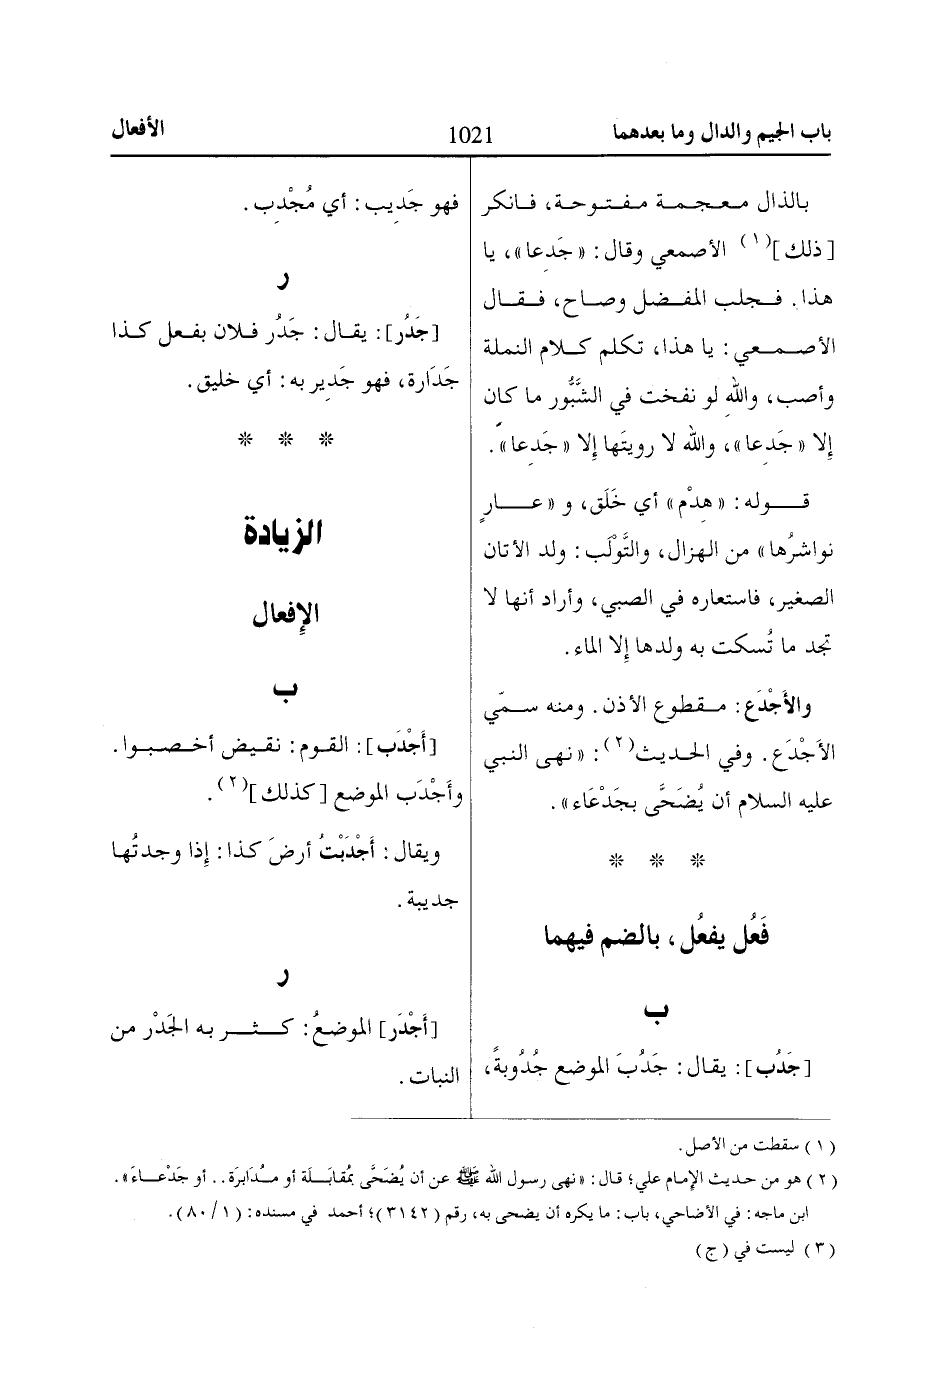 باب الجيم والدال وما بعدهما
1021
الأفعال
بالذال معجمة مفتوحة، فانكر
[ذلك](١) الأصمعي وقال: «جَدِعا»، يا
هذا. فجلب المفضل وصاح، فقال
الأصمعي: يا هذا، تكلم كلام النملة
وأصب، والله لو نفخت في الشَّبُّور ما كان
إلا «جَدِعا»، والله لا رويتَها إلا «جَدِعا».
قوله: «هِدْم» أي خَلَق، و «عارٍ
نواشرُها» من الهزال، والتَّوْلَب: ولد الأتان
الصغير، فاستعاره في الصبي، وأراد أنها لا
تجد ما تُسكت به ولدها إلا الماء.
والأَجْدَع: مقطوع الأذن. ومنه سمّي
الأَجْدَع. وفي الحديث(٢): «نهى النبي
عليه السلام أن يُضَحَّى بجَدْعَاء».
* * *
فَعُل يفعُل، بالضم فيهما
ب
[جَدُب]: يقال: جَدُبَ الموضع جُدُوبةً،
فهو جَدِيب: أي مُجْدِب.
ر
[جَدُر]: يقال: جَدُر فلان بفعل كذا
جَدَارة، فهو جَدِير به: أي خليق.
* * *
الزيادة
الإفعال
ب
[أَجْدَب]: القوم: نقيض أخصبوا.
وأَجْدَب الموضع [كذلك](٢).
ويقال: أَجْدَبْتُ أرضَ كذا: إذا وجدتُها
جديبة.
ر
[أَجْدَر] الموضعُ: كثر به الجَدْر من
النبات.
(١) سقطت من الأصل.
(٢) هو من حديث الإمام علي؛ قال: «نهى رسول الله ﷺ عن أن يُضَحَّى بمُقابَلة أو مُدَابَرَة.. أو جَدْعاءَ».
ابن ماجه: في الأضاحي، باب: ما يكره أن يضحى به، رقم (٣١٤٢)؛ أحمد في مسنده: (١/ ٨٠).
(٣) ليست في (ج)